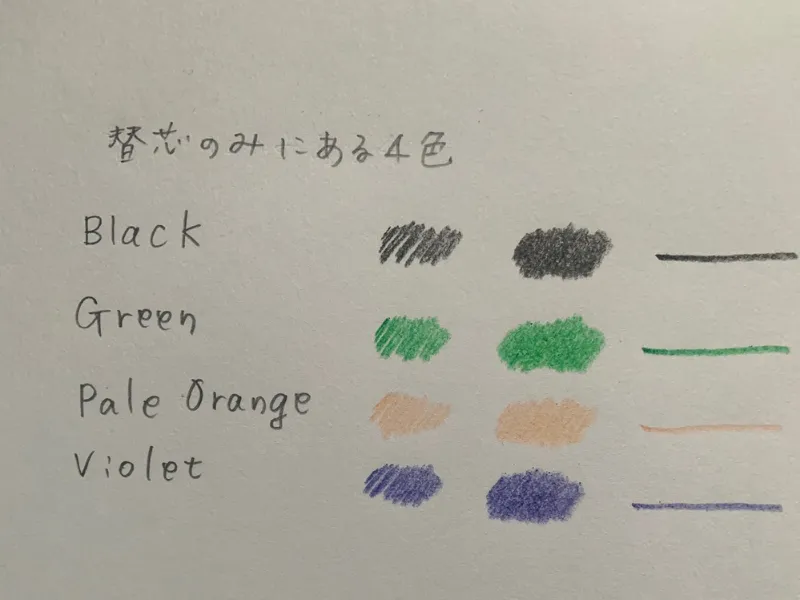 替芯のみにある4色
Black
Green
Pale Orange
Violet